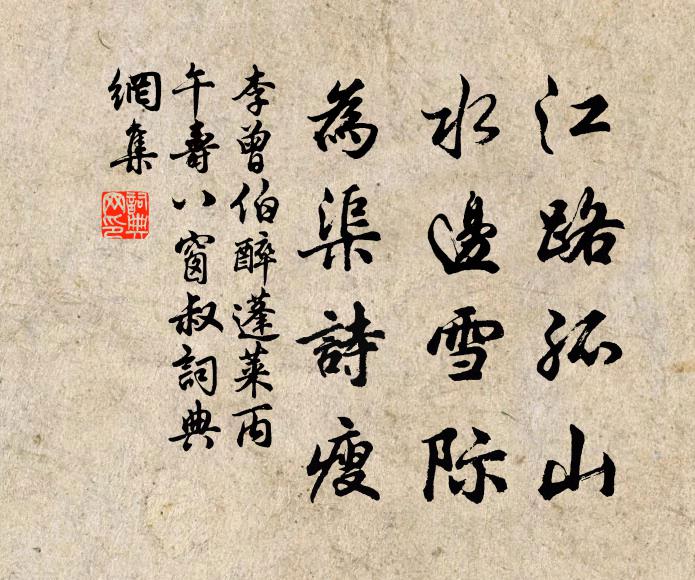 江路孤山
水邊雪际
為渠詩瘦
李曾伯醉蓬萊丙
午壽八窗叔詞典
網集
詞典
网印